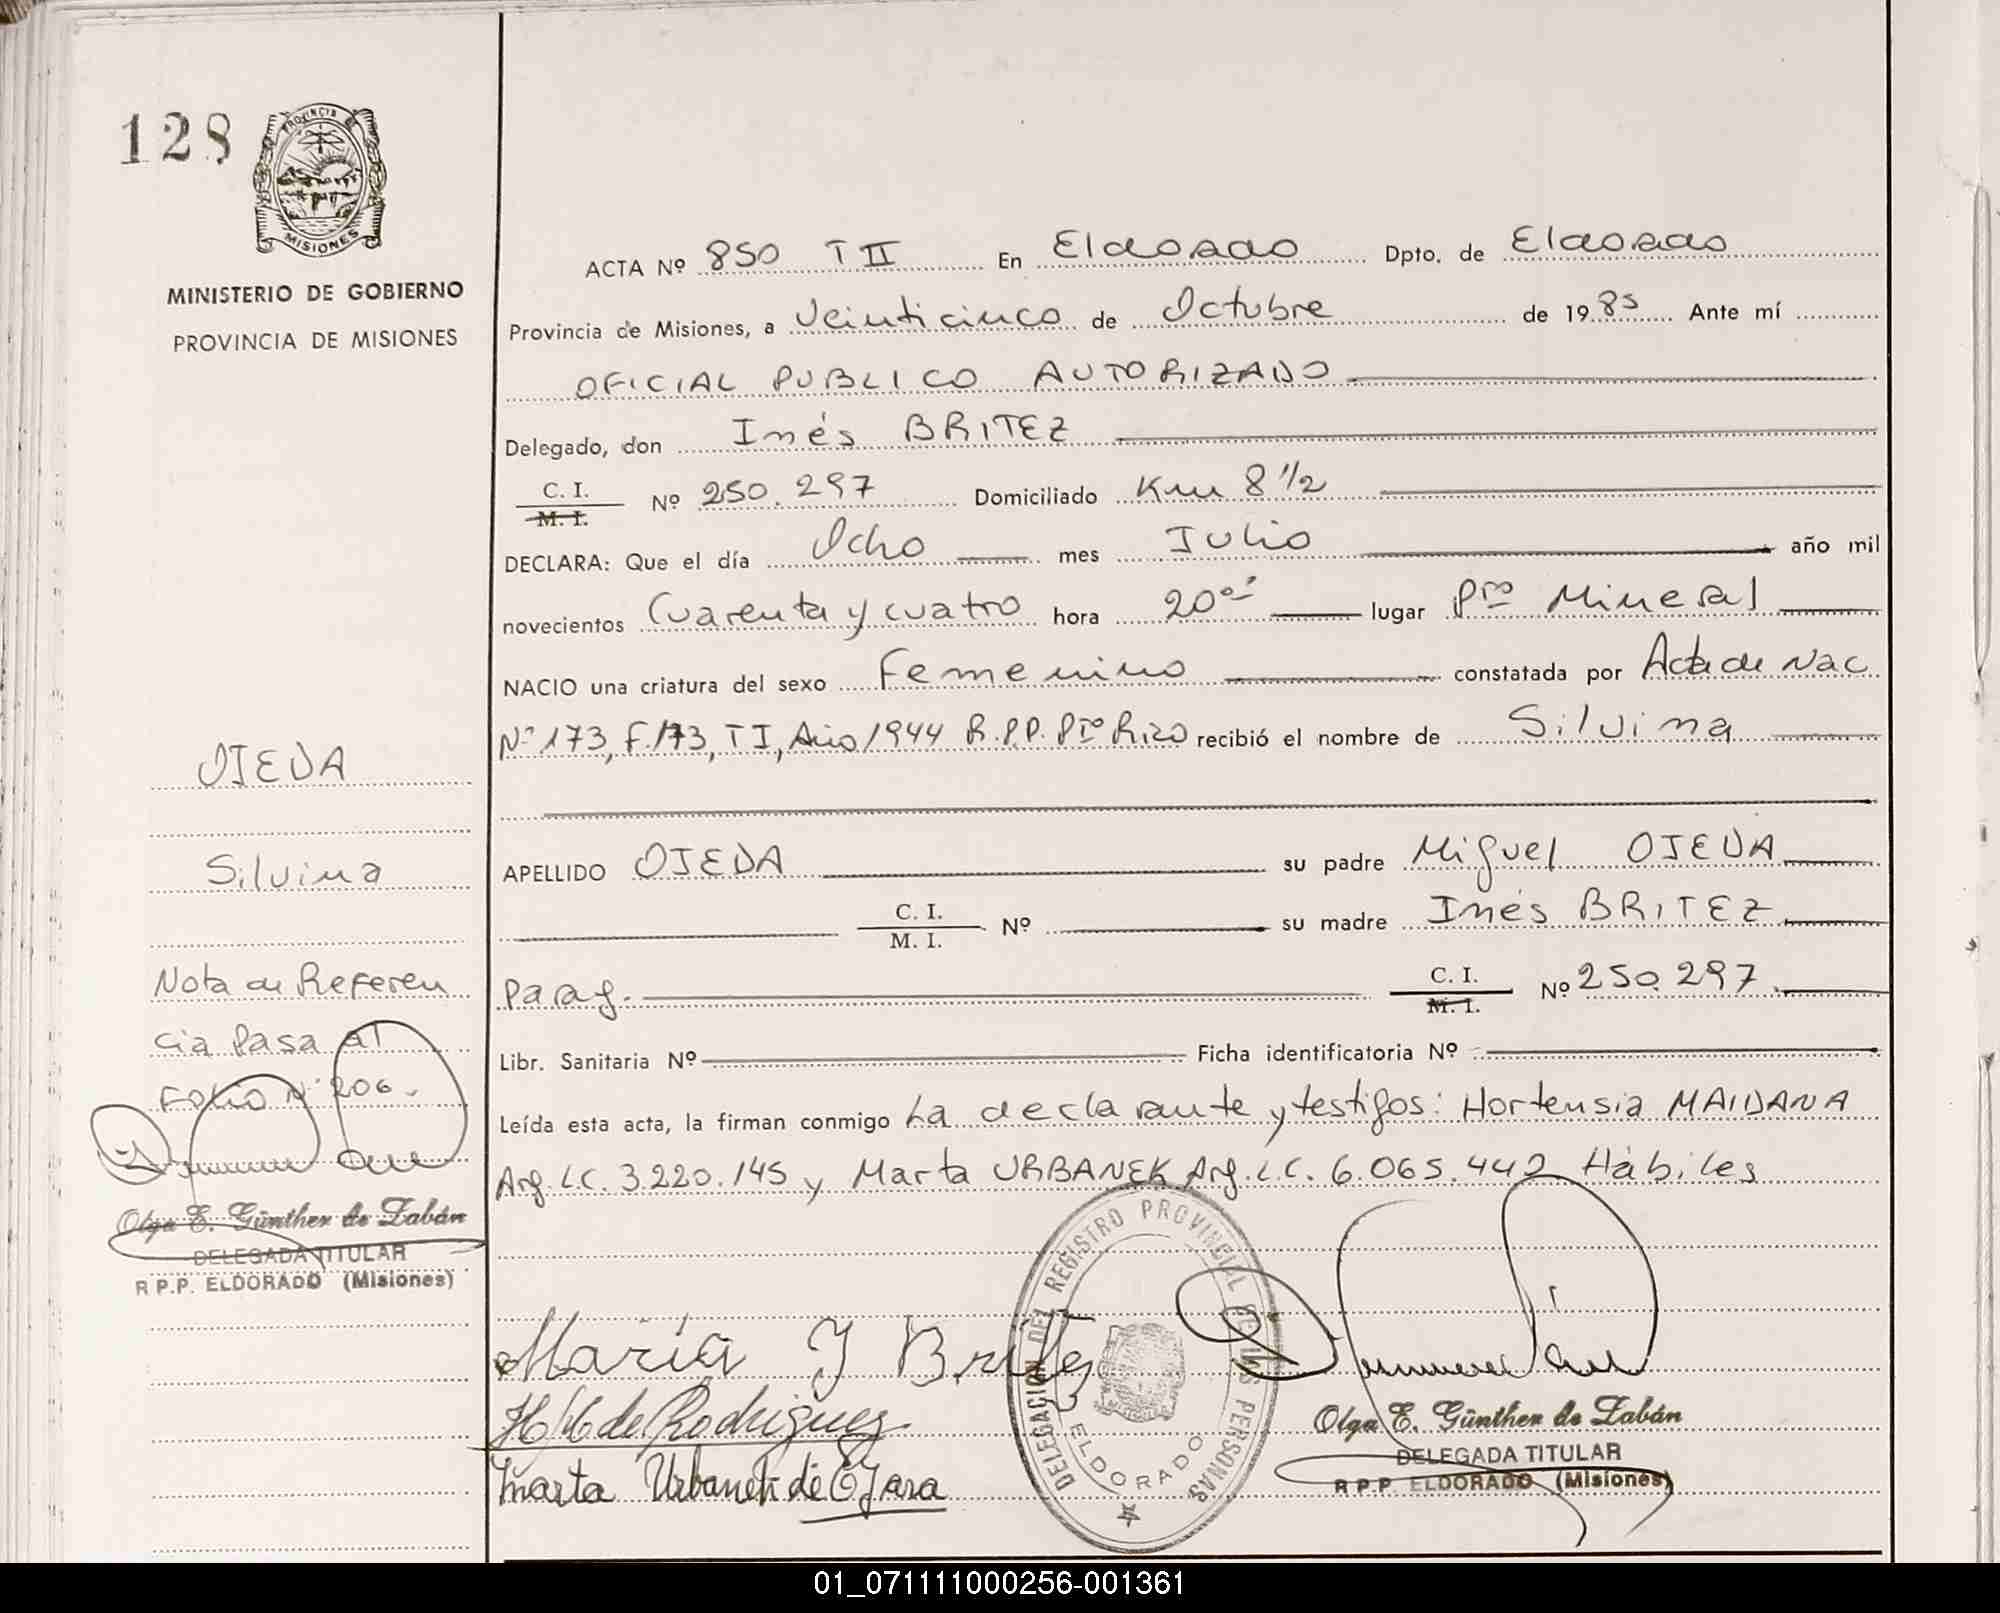 128
PROVINCIA DE
MISIONES
MINISTERIO DE GOBIERNO
PROVINCIA DE MISIONES
ACTA Nº 850 T II En Eldorado Dpto. de Eldorado
Provincia de Misiones, a Veinticinco de Octubre de 1985 Ante mí
OFICIAL PUBLICO AUTORIZADO
Delegado, don Inés BRITEZ
C. I.
M. I.
Nº 250.297 Domiciliado Km 8 1/2
DECLARA: Que el día Ocho mes Julio año mil
novecientos Cuarenta y cuatro hora 20 lugar Pto Mineral
NACIO una criatura del sexo Femenino constatada por Acta de Nac
Nº 173, F.173, T I, Año 1944 R.P.P. Pto Rico recibió el nombre de Silvina
APELLIDO OJEDA su padre Miguel OJEDA
C. I.
M. I.
Nº su madre Inés BRITEZ
Parag. C. I.
M. I.
Nº 250.297
Libr. Sanitaria Nº Ficha identificatoria Nº
Leída esta acta, la firman conmigo La declarante y testigos: Hortensia MAIDANA
Arg. LC. 3.220.145 y Marta URBANEK Arg. L.C. 6.065.442 Hábiles
OJEDA
Silvina
Nota de Referen
cia Pasa al
Folio Nº 206.
Olga E. Günther de Zabán
DELEGADA TITULAR
R P.P. ELDORADO (Misiones)
María I Britez
H M de Rodriguez
Marta Urbanek de Ojara
DELEGACION DEL REGISTRO PROVINCIAL DE LAS PERSONAS
ELDORADO
Olga E. Günther de Zabán
DELEGADA TITULAR
R P.P ELDORADO (Misiones)
01_071111000256-001361